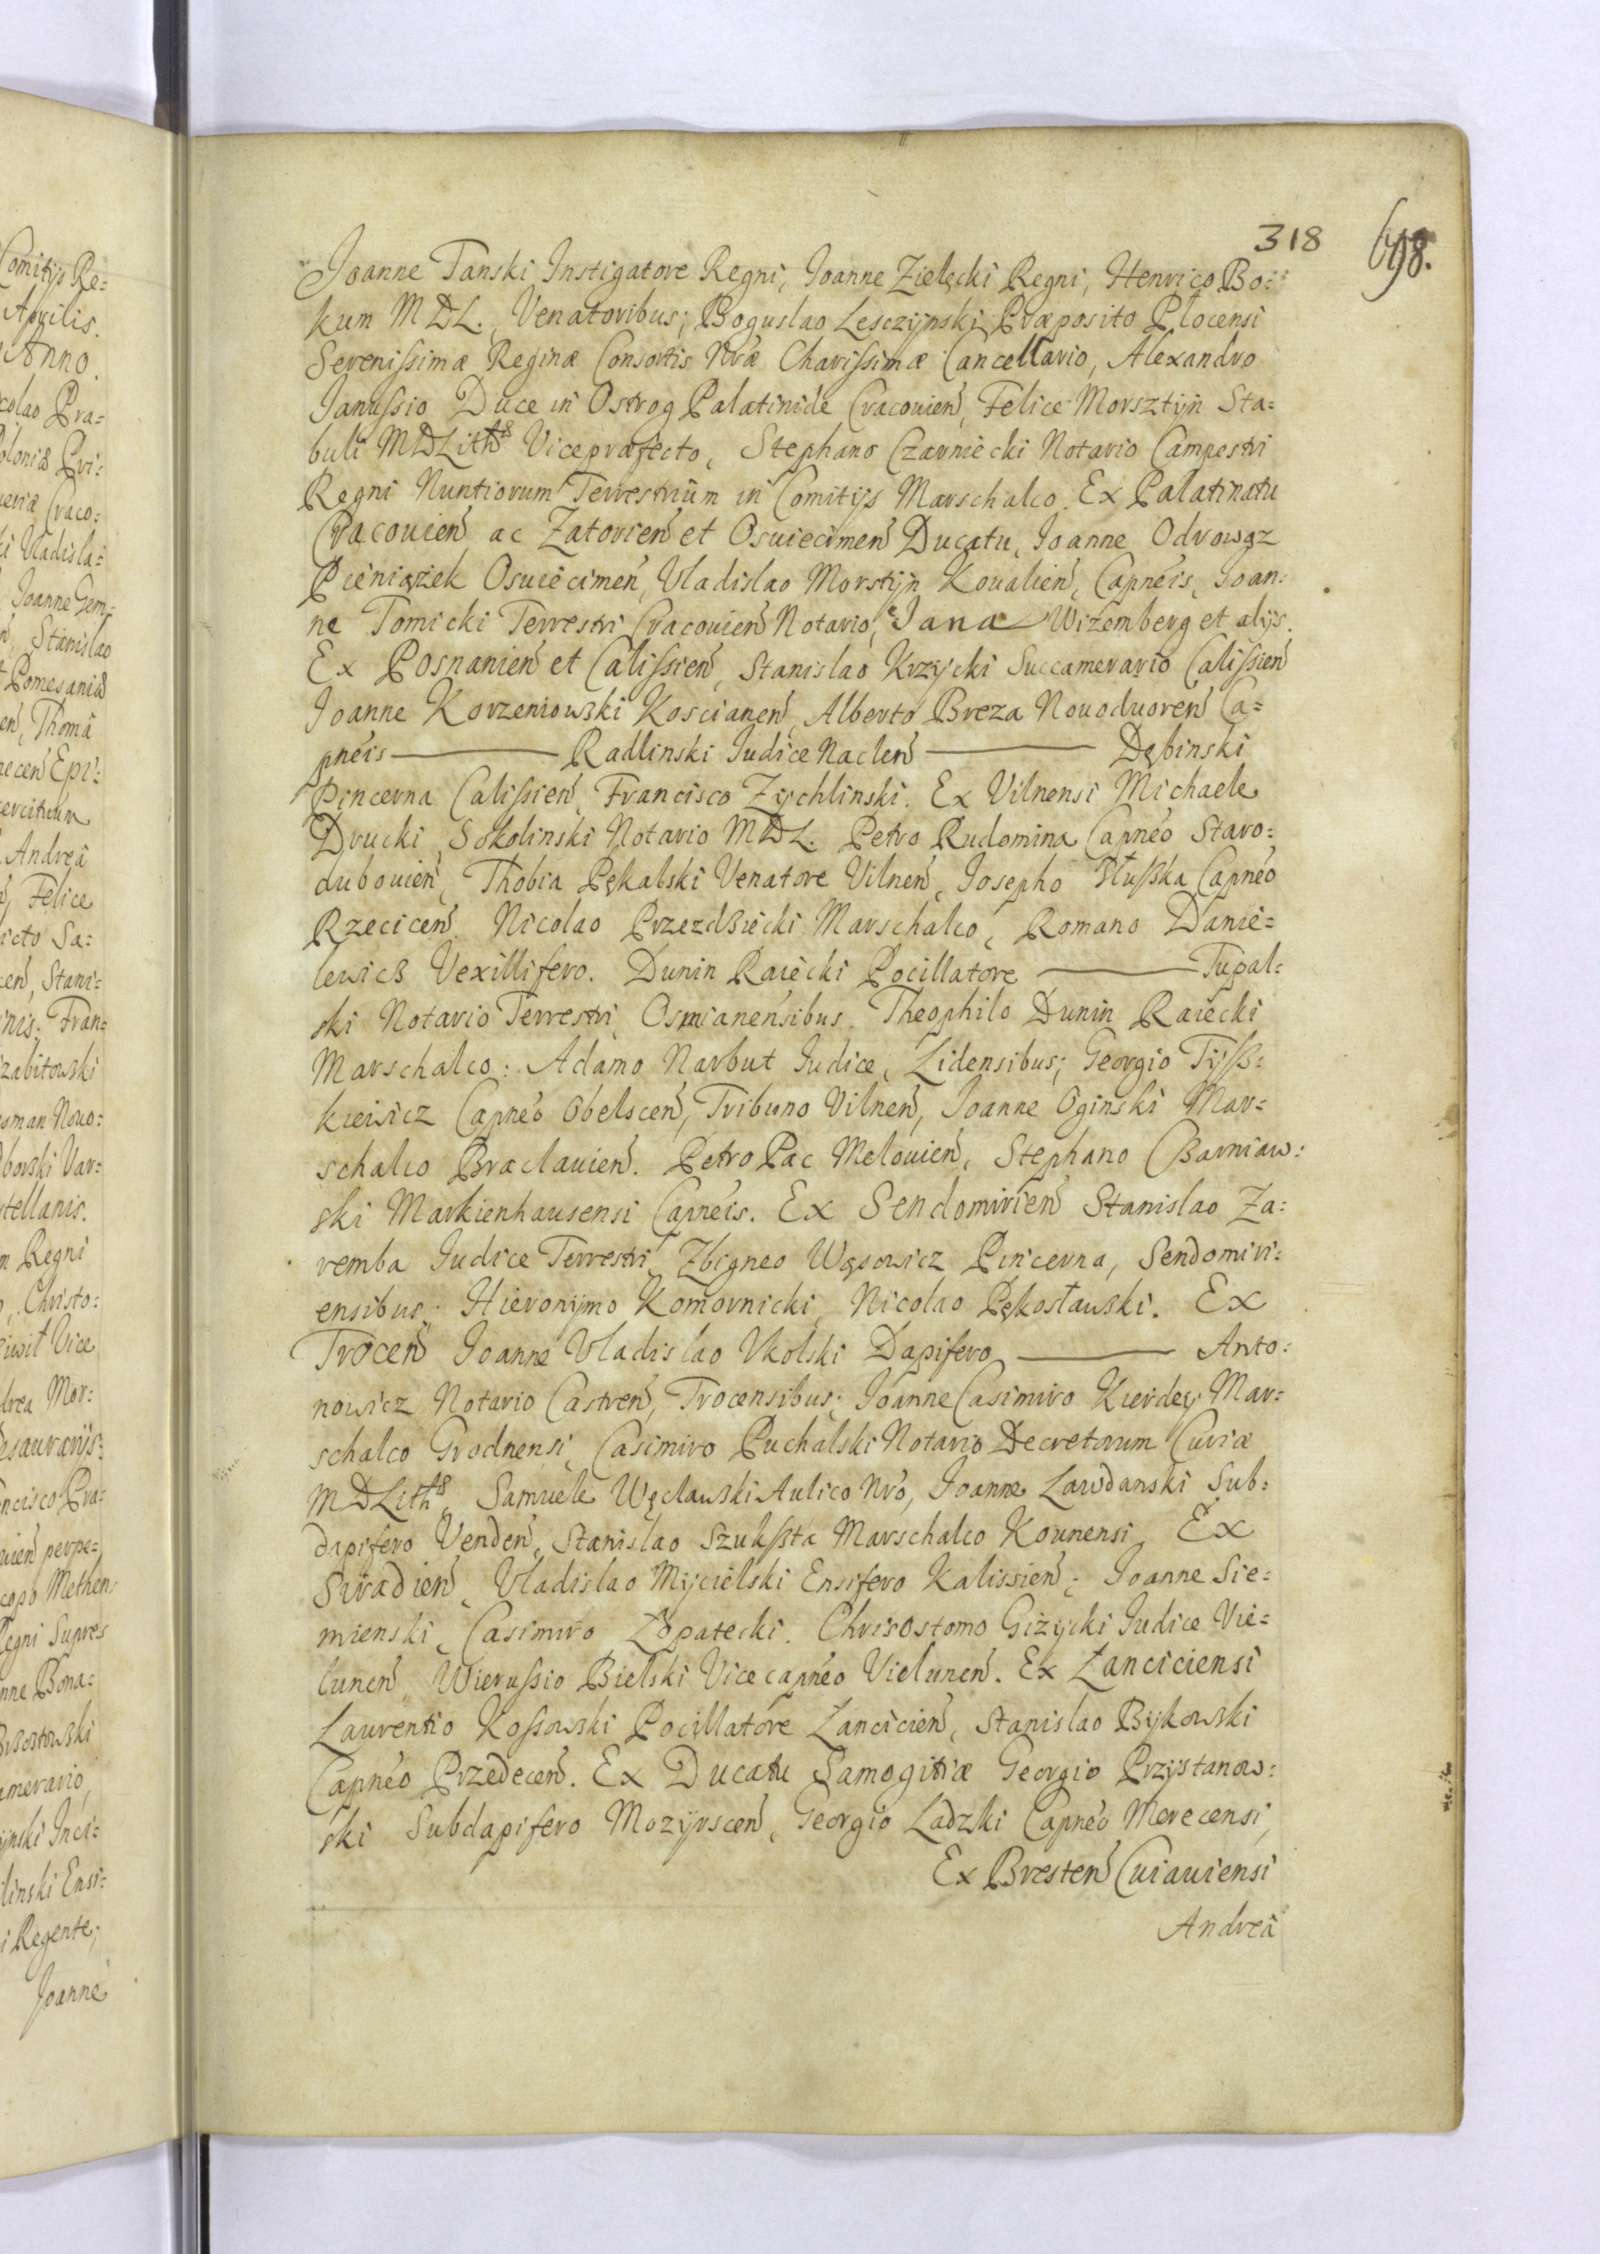 318
698.
Joanne Tanski Instigatore Regni, Joanne Zielęcki Regni, Henrico Bo=
kum MDL. Venatoribus; Boguslao Lesczynski Præposito Płocensi
Serenissimæ Reginæ Consortis Nræ Charissimæ Cancellario, Alexandro
Janussio Duce in Ostrog Palatinide Cracouien, Felice Morsztyn Sta=
buli MDLith Vicepræfecto, Stephano Czarniecki Notario Campestri
Regni Nuntiorum Terrestrium in Comitijs Marschalco. Ex Palatinatu
Cracouien ac Zatorien et Osuiecimen Ducatu, Joanne Odrowąz
Pieniążek Osuiecimen, Vladislao Morstyn Koualien, Capneis, Joan=
ne Tomicki Terrestri Cracouien Notario, Jana Wizemberg et alijs.
Ex Posnanien et Calissien, Stanislao Krzycki Succamerario Calissien
Joanne Korzeniowski Koscianen, Alberto Breza Nouoduoren Ca=
pneis ——— Radlinski Iudice Naclen ——— Dębinski
Pincerna Calissien, Francisco Zychlinski. Ex Vilnensi Michaele
Drucki Sokolinski Notario MDL. Petro Rudomina Capneo Staro=
dubouien, Thobia Pękalski Venatore Vilnen, Josepho Słußka Capneo
Rzecicen. Nicolao Przezdßiecki Marschalco, Romano Danie=
lewicß Vexillifero. Dunin Raiecki Pocillatore ——— Tupal=
ski Notario Terrestri Osmianensibus. Theophilo Dunin Raiecki
Marschalco: Adamo Narbut Iudice, Lidensibus; Georgio Tyß=
kiewicz Capneo Obelscen, Tribuno Vilnen, Joanne Oginski Mar=
schalco Braclauien. Petro Pac Melouien, Stephano Cßarniaw=
ski Markienhausensi Capneis. Ex Sendomirien Stanislao Za=
remba Iudice Terrestri, Zbigneo Wąsowicz Pincerna, Sendomiri=
ensibus; Hieronymo Komornicki, Nicolao Pękosławski. Ex
Trocen Joanne Vladislao Vkolski Dapifero ——— Anto=
nowicz Notario Castren, Trocensibus; Joanne Casimiro Kierdey Mar=
schalco Grodnensi, Casimiro Puchalski Notario Decretorum Curiæ
MDLith, Samuele Węclawski Aulico Nro, Joanne Lawdanski Sub=
dapifero Venden, Stanislao Szukßta Marschalco Kounensi Ex
Siradien, Vladislao Mycielski Ensifero Kalissien; Joanne Sie=
mienski, Casimiro Łopatecki. Chrisostomo Giżycki Iudice Vie=
lunen, Wierussio Bielski Vice capneo Vielunen. Ex Łanciciensi
Laurentio Kossowski Pocillatore Lancicien, Stanislao Bykowski
Capneo Przedecen. Ex Ducatu Samogitiæ Georgio Przystanow=
ski Subdapifero Mozyrscen, Georgio Ladzki Capneo Merecensi,
Ex Bresten Cuiauiensi
Andreâ